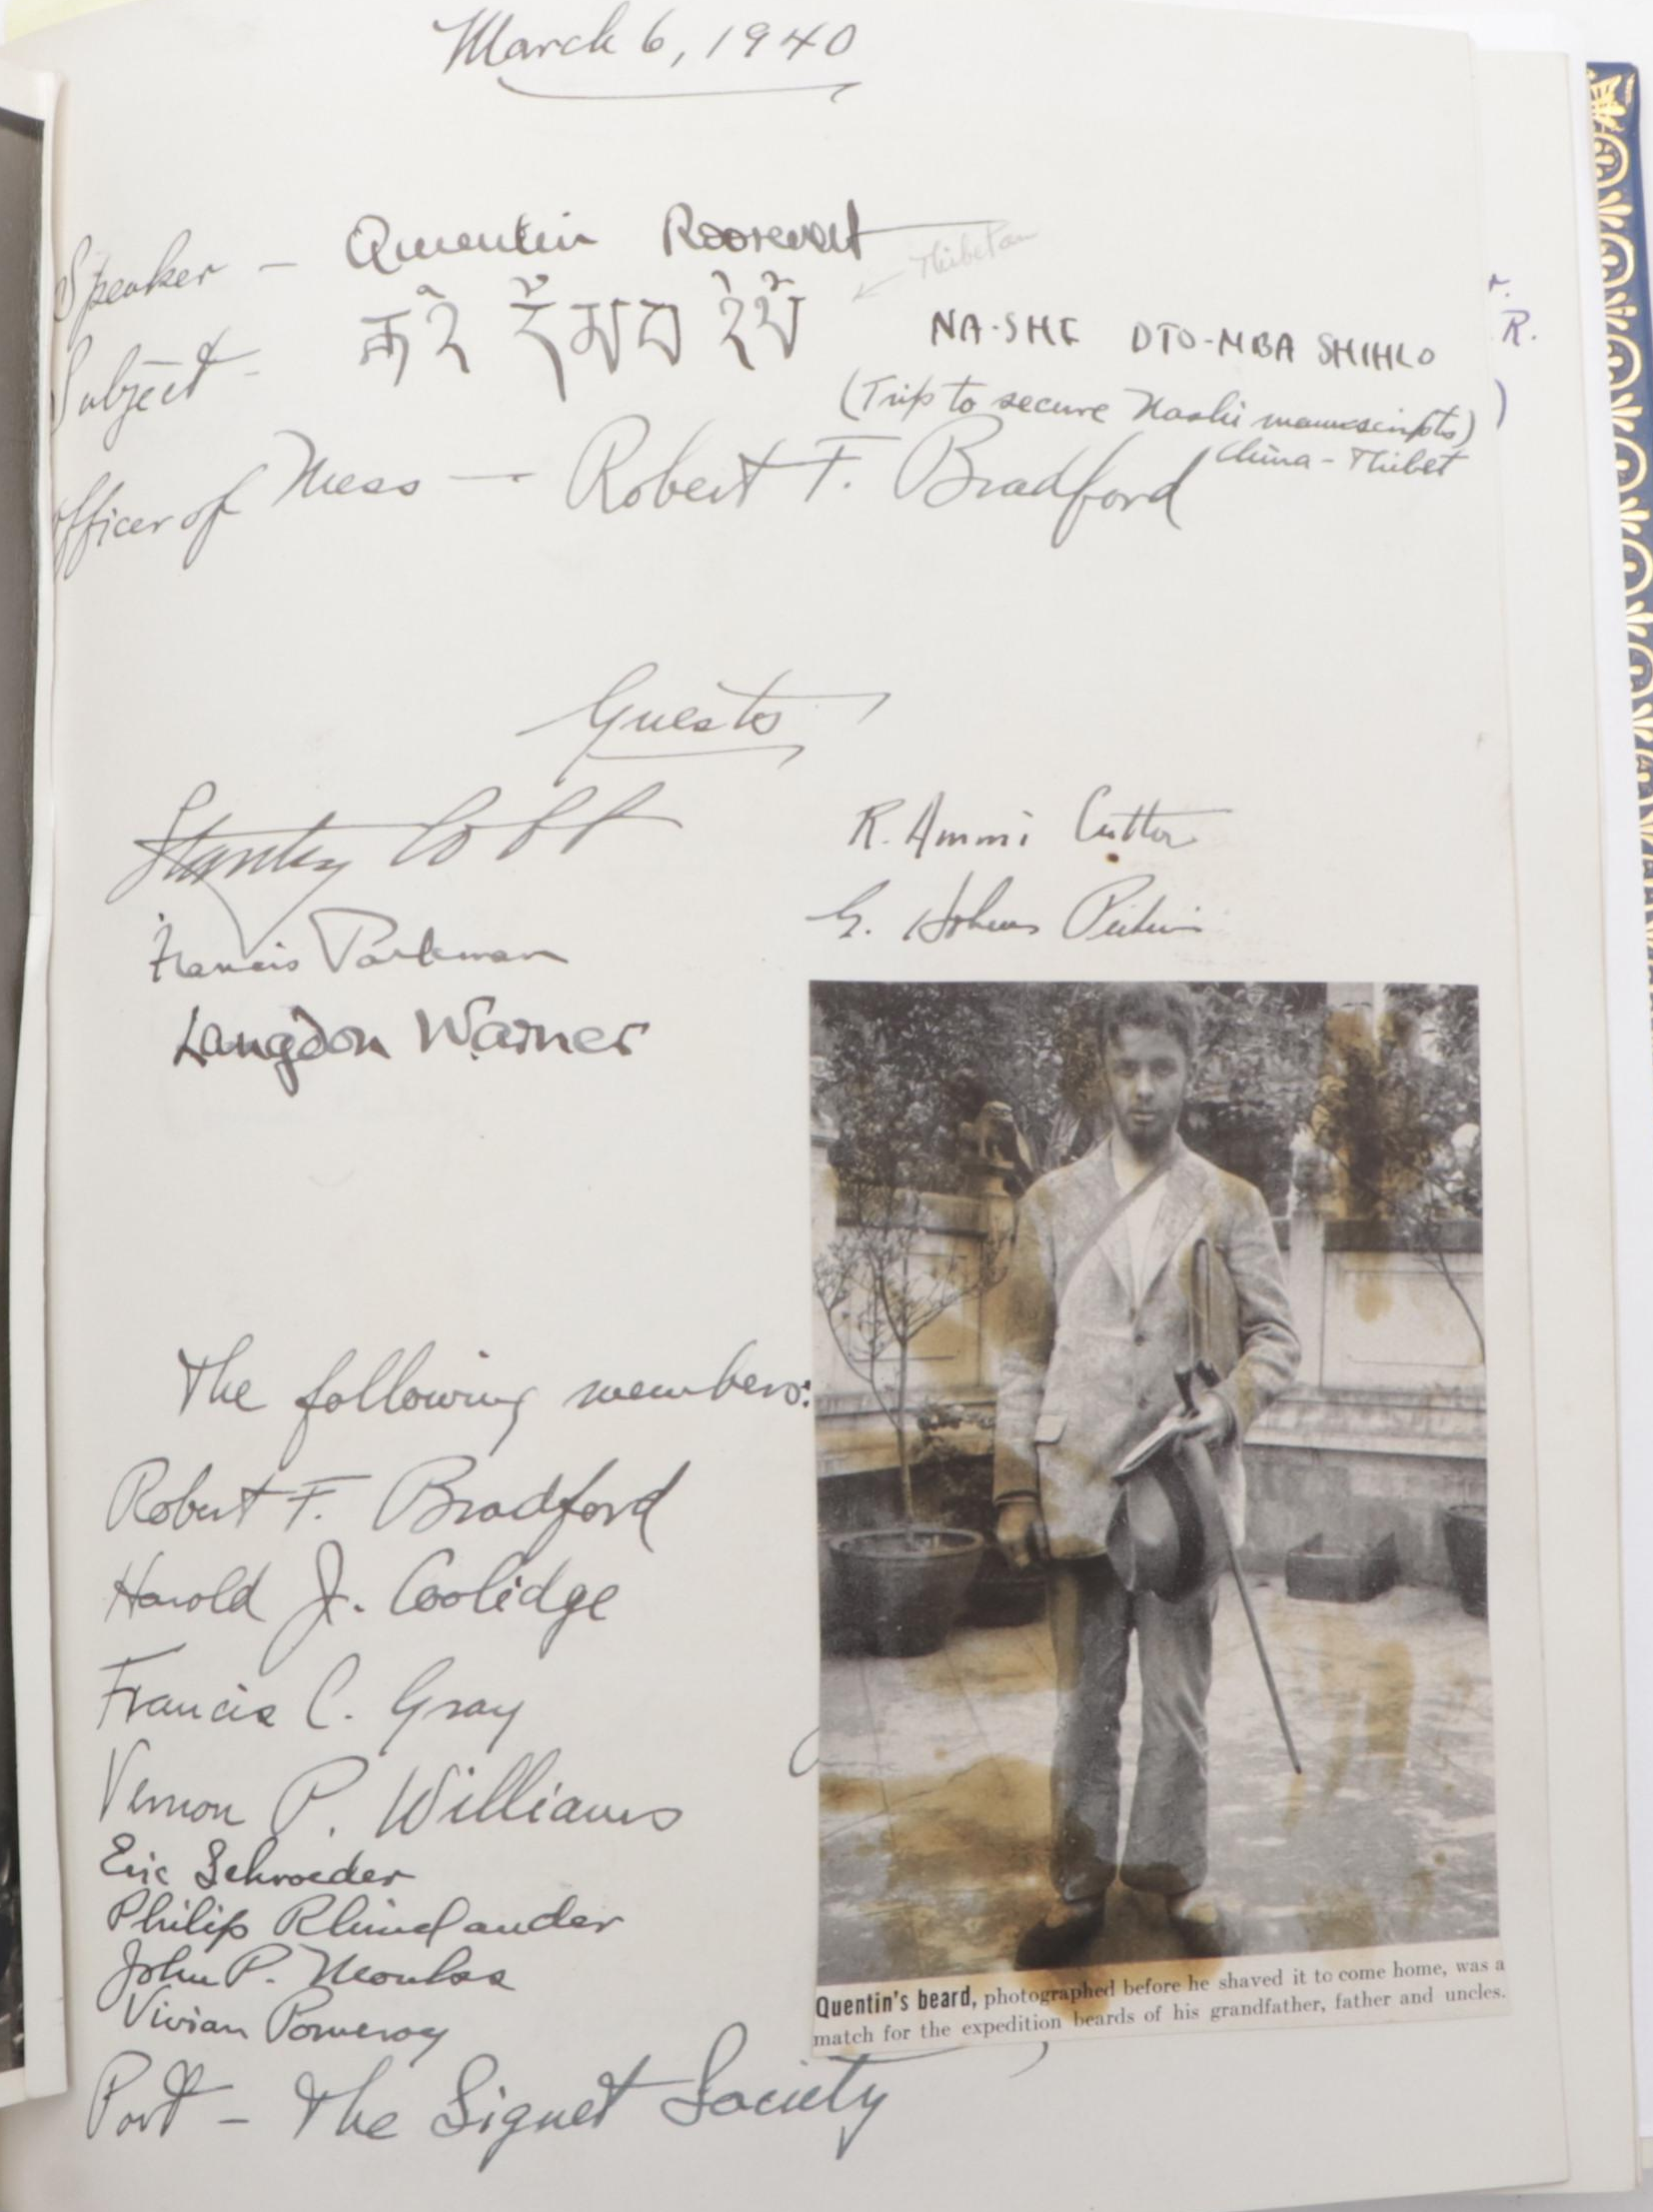 March 6, 1940
Speaker - Quentin Roosevelt
Thibetan
Subject -
NA-SHE DTO-MBA SHIHLO
(Trip to secure Nashi manuscripts)
China - Thibet
Officer of Mess - Robert F. Bradford
R.
)
Guests
Stanley Cobb
R. Ammi Cutter
G. Holmes Perkins
Francis Parkman
Langdon Warner
The following members:
Robert F. Bradford
Harold J. Coolidge
Francis C. Gray
Vernon P. Williams
Eric Schroeder
Philip Rhinelander
John P.
Vivian Pomeroy
Port - The Signet Society
Quentin's beard, photographed before he shaved it to come home, was a
match for the expedition beards of his grandfather, father and uncles.